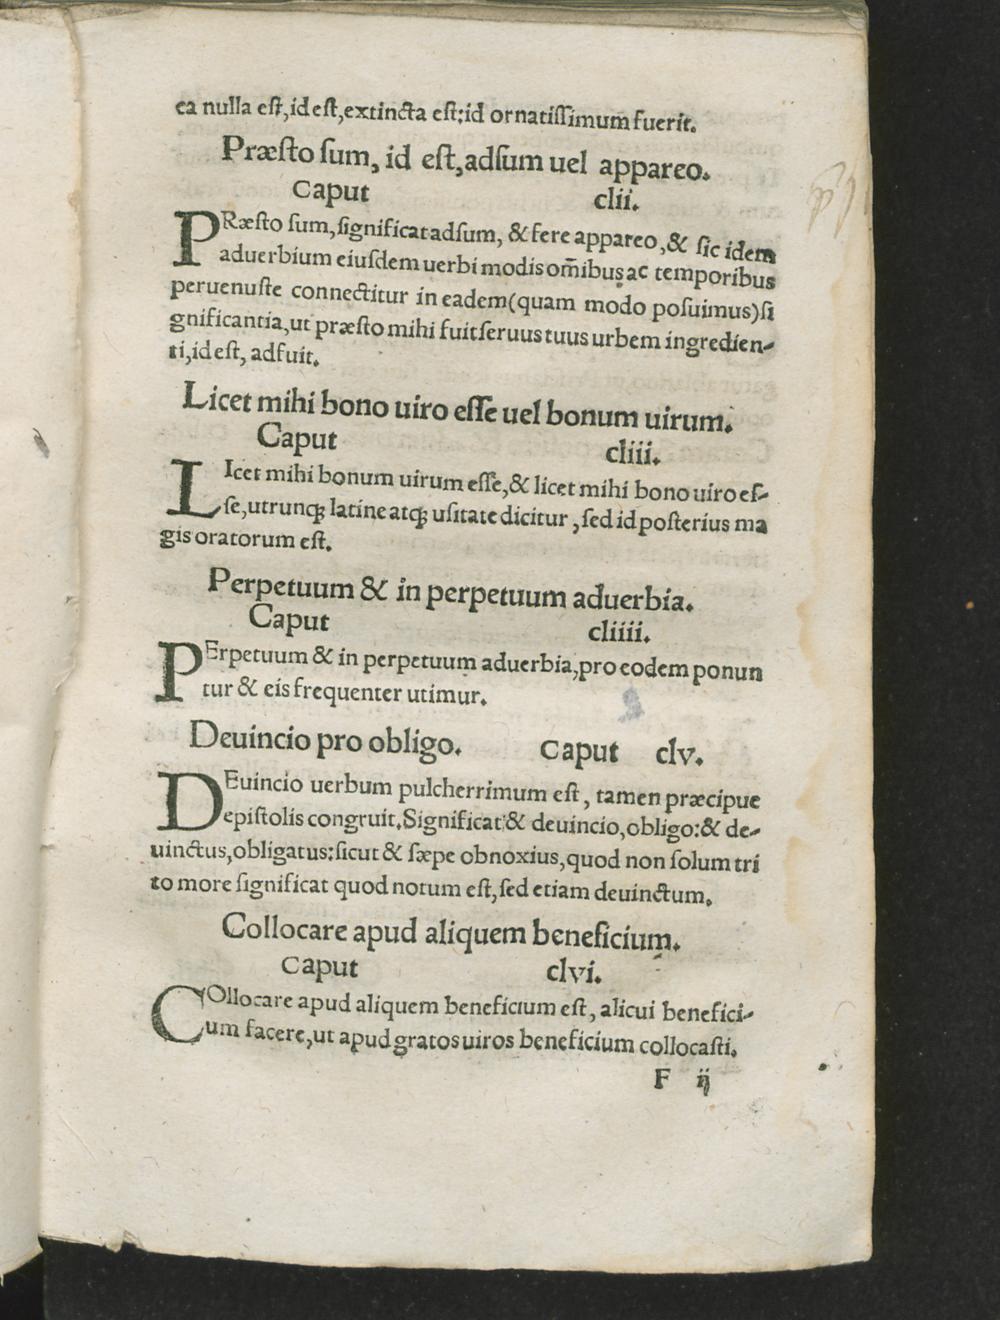 ea nulla eſt,id eſt,extincta eſt:id ornatiſſimum fuerit.
Præſto ſum, id eſt,adſum uel appareo.
Caput clii.
PRæſto ſum,ſignificat adſum, & fere appareo,& ſic idem
aduerbium eiuſdem uerbi modis om̄ibus ac temporibus
peruenuſte connectitur in eadem(quam modo poſuimus)ſi
gnificantia,ut præſto mihi fuit ſeruus tuus urbem ingredien-
ti,id eſt, adfuit.
Licet mihi bono uiro eſſe uel bonum uirum.
Caput cliii.
LIcet mihi bonum uirum eſſe,& licet mihi bono uiro eſ-
ſe,utrunqꝫ latine atqꝫ uſitate dicitur, ſed id poſterius ma
gis oratorum eſt.
Perpetuum & in perpetuum aduerbia.
Caput cliiii.
PErpetuum & in perpetuum aduerbia,pro eodem ponun
tur & eis frequenter utimur.
Deuincio pro obligo. Caput clv.
DEuincio uerbum pulcherrimum eſt, tamen præcipue
epiſtolis congruit.Significat & deuincio,obligo:& de-
uinctus,obligatus:ſicut & ſæpe obnoxius,quod non ſolum tri
to more ſignificat quod notum eſt,ſed etiam deuinctum.
Collocare apud aliquem beneficium.
Caput clvi.
COllocare apud aliquem beneficium eſt, alicui benefici-
um facere,ut apud gratos uiros beneficium collocaſti.
F ij